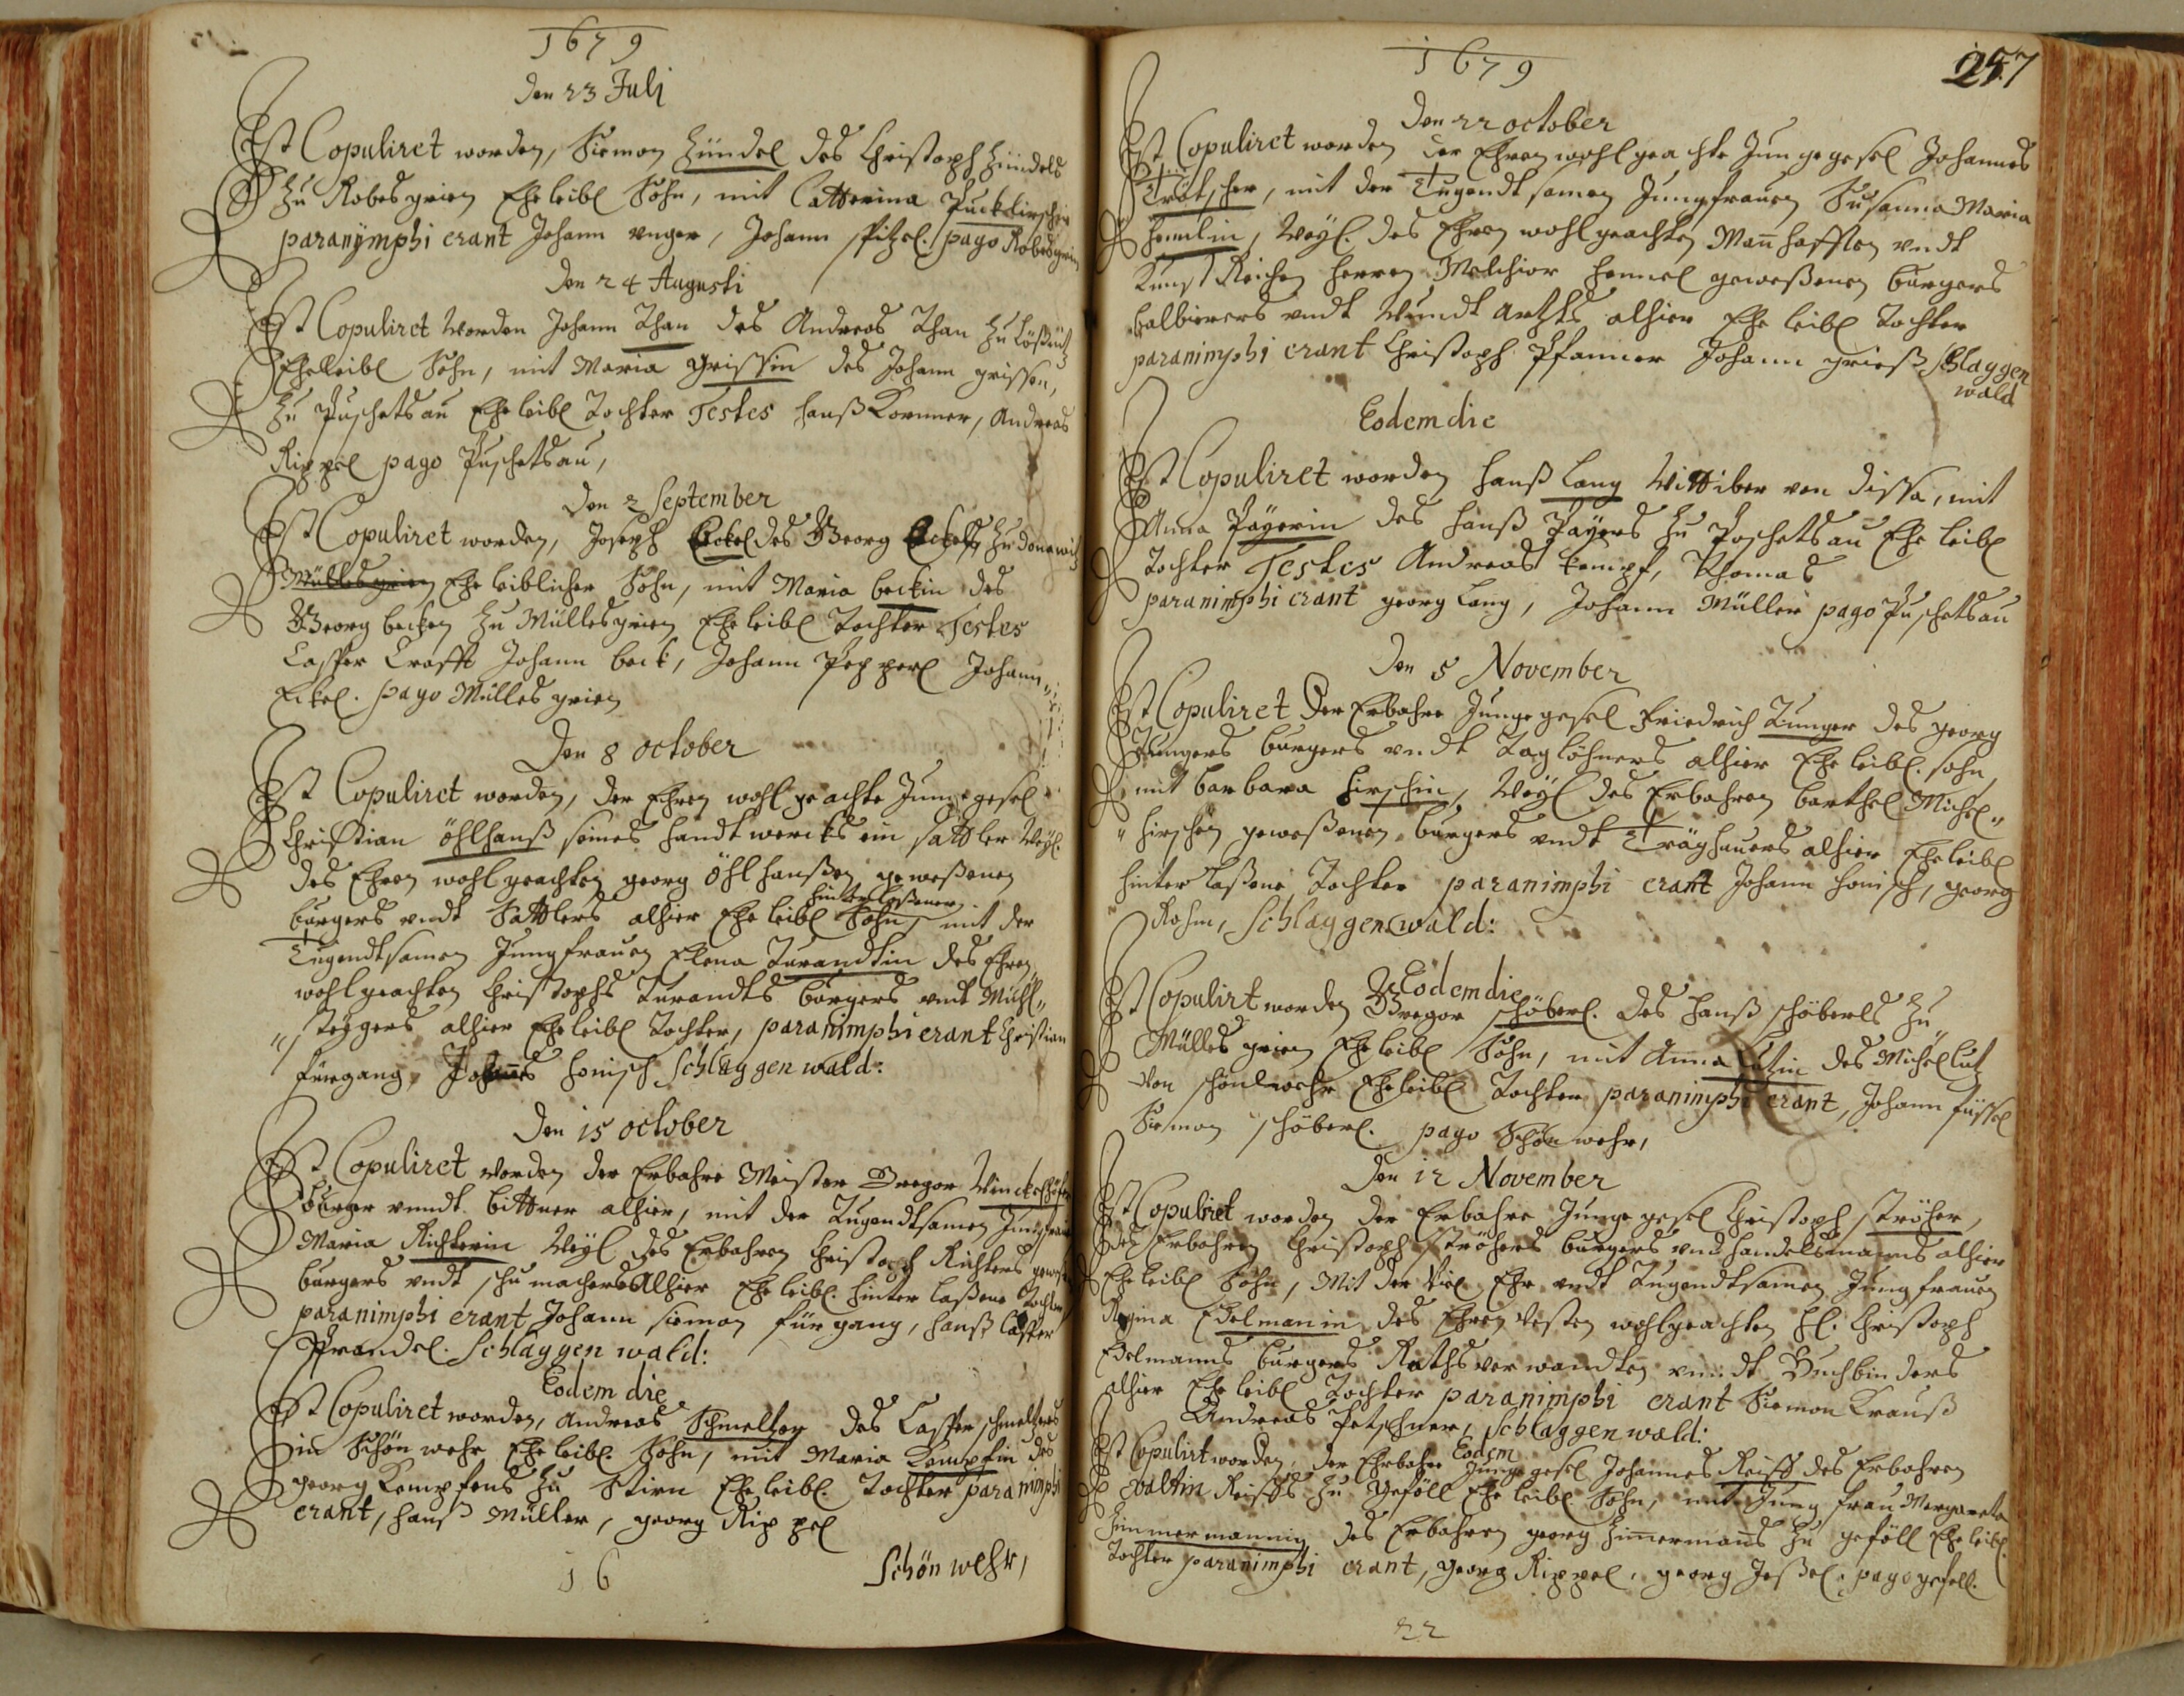 1679
den 23 Juli
Ist Copuliret worden, Siemon Zündel des Christoph Zündels
zu Robesgrien Eheleibl Sohn, mit Catterina Puckelirschin
paranymphi erant Johann Unger, Johann Pitzel. pago Robesgrien
den 24 Augusti
Ist Copuliret worden Johann Than des Andreas Than zu Lößnitz
Eheleibl Sohn, mit Maria Grissin des Johann Grissen,
zu Puschetsau Eheleibl Tochter Testes Hanß Kornner, Andreas
Rippel pago Puschetsau,
den 2 September
Ist Copuliret worden, Joseph Eckel des Georg Eckels zu Donawitz
Müllesgrien Eheleiblicher Sohn, mit Maria Beckin des
Georg Becken zu Müllesgrien Eheleibl Tochter Testes
Casper Crafft Johann Beck, Johann Pepperl Johann
Eckel. pago Müllesgrien
den 8 october
Ist Copuliret worden, der Ehren wohl geachte Junggesel
Christian öhlhanß seines Handtwercks ein Sattler Weyl.
des Ehren wohlgeachten Georg öhlhanßen geweßenen
hinterlaßener
burgers undt Sattlers alhier Eheleibl Sohn, mit der
Tugendtsamen Jungfrauen Elena Turandtin des Ehren
wohlgeachten Christophs Turandts burgers undt Mühl
steygers alhier Eheleibl Tochter, paranimphi erant Christian
Fürgang, Johannes Honisch Schlaggenwald:
den 15 october
Ist Copuliret worden der Erbahre Meister Gregor Winckelhöfer
burger unndt bittner alhier, mit der Tugendtsamen Jungfrau
Maria Richterin Weyl des Erbahren Christoph Richters geweß
burgers undt schumachers Alhier Eheleibl. hinterlaßene Tochter
paranimphi erant Johann Siemon Fürgang, Hanß Casper
Prandel. Schlaggenwald:
Eodem die
Ist Copuliret worden, Andreas Schmeltzer des Casper Schmeltzers
in Schönwehr Eheleibl. Sohn, mit Maria Kempfin des
Georg Kempfens zu Stirn Eheleibl. Tochter paranimphi
erant, Hanß Müller, Georg Rippel
Schönwehr,
16
1679
257
den 22 october
Ist Copuliret worden der Ehren wohlgeachte Junggesel Johannes
Trötscher, mit der Tugendtsamen Jungfrauen Susanna Maria
Hemlin, Weyl. des Ehren wohlgeachten Manhafften undt
Kunst Reichen Herren Melchior Hemel geweßenen burgers
balbierers undt Wundt Artzts alhier Eheleibl Tochter
paranimphi erant Christoph Pfanner Johann Grieß Schlaggen
wald
Eodem die
Ist Copuliret worden Hanß Lang Wittiber von Dissa, mit
Anna Payerin des Hanß Payers zu Poschetsau Eheleibl
Tochter Testes Andreas Kempf, Thomas
paranimphi erant Georg Lang, Johann Müller pago Puschetsau
den 5 November
Ist Copuliret der Erbahre Junggesel Friedrich Tunger des Georg
Tungers burgers undt Taglöhners alhier Eheleibl. Sohn,
mit Barbara Hirschin, Weyl des Erbahren Barthel Michel
Hirschen geweßenen burgers undt Träyhauers alhier Eheleibl
hinterlaßene Tochter paranimphi erant Johann Honisch, Georg
Rohm, Schlaggenwald:
Eodem die
Ist Copulirt worden Gregor Schöberl. des Hanß Schöberls zu
Müllesgrien Eheleibl Sohn, mit Anna Lutzin des Michel Lutz
von Schönwehr Eheleibl Tochter paranimphi erant, Johann Füssel
Siemon Schöberl. pago Schönwehr,
den 12 November
Ist Copuliret worden der Erbahre Junggesel Christoph Ströher,
des Erbahren Christoph Ströhers burgers und Handelsmanns alhier
Eheleibl Sohn, Mit der Viel Ehr undt Tugendtsamen Jungfrauen
Regina Edelmanin des Ehren Vesten wohlgeachten H. Christoph
Edelmanns burgers Raths verwandten unndt Buchbinders
alhier Eheleibl Tochter paranimphi erant Siemon Krauß
Andreas Petschner, Schlaggenwald:
Eodem
Ist Copulirt worden, der Ehrbahre Junggesel Johannes Reiß des Erbahren
Valtin Reißs zu Gefäll Eheleibl Sohn, mit Jungfrau Margareta
Zimmermannin des Erbahren Georg Zimermans zu Gefäll Eheleibl
Tochter paranimphi erant, Georg Rippel, Georg Jeßel. pago Gefell.
22